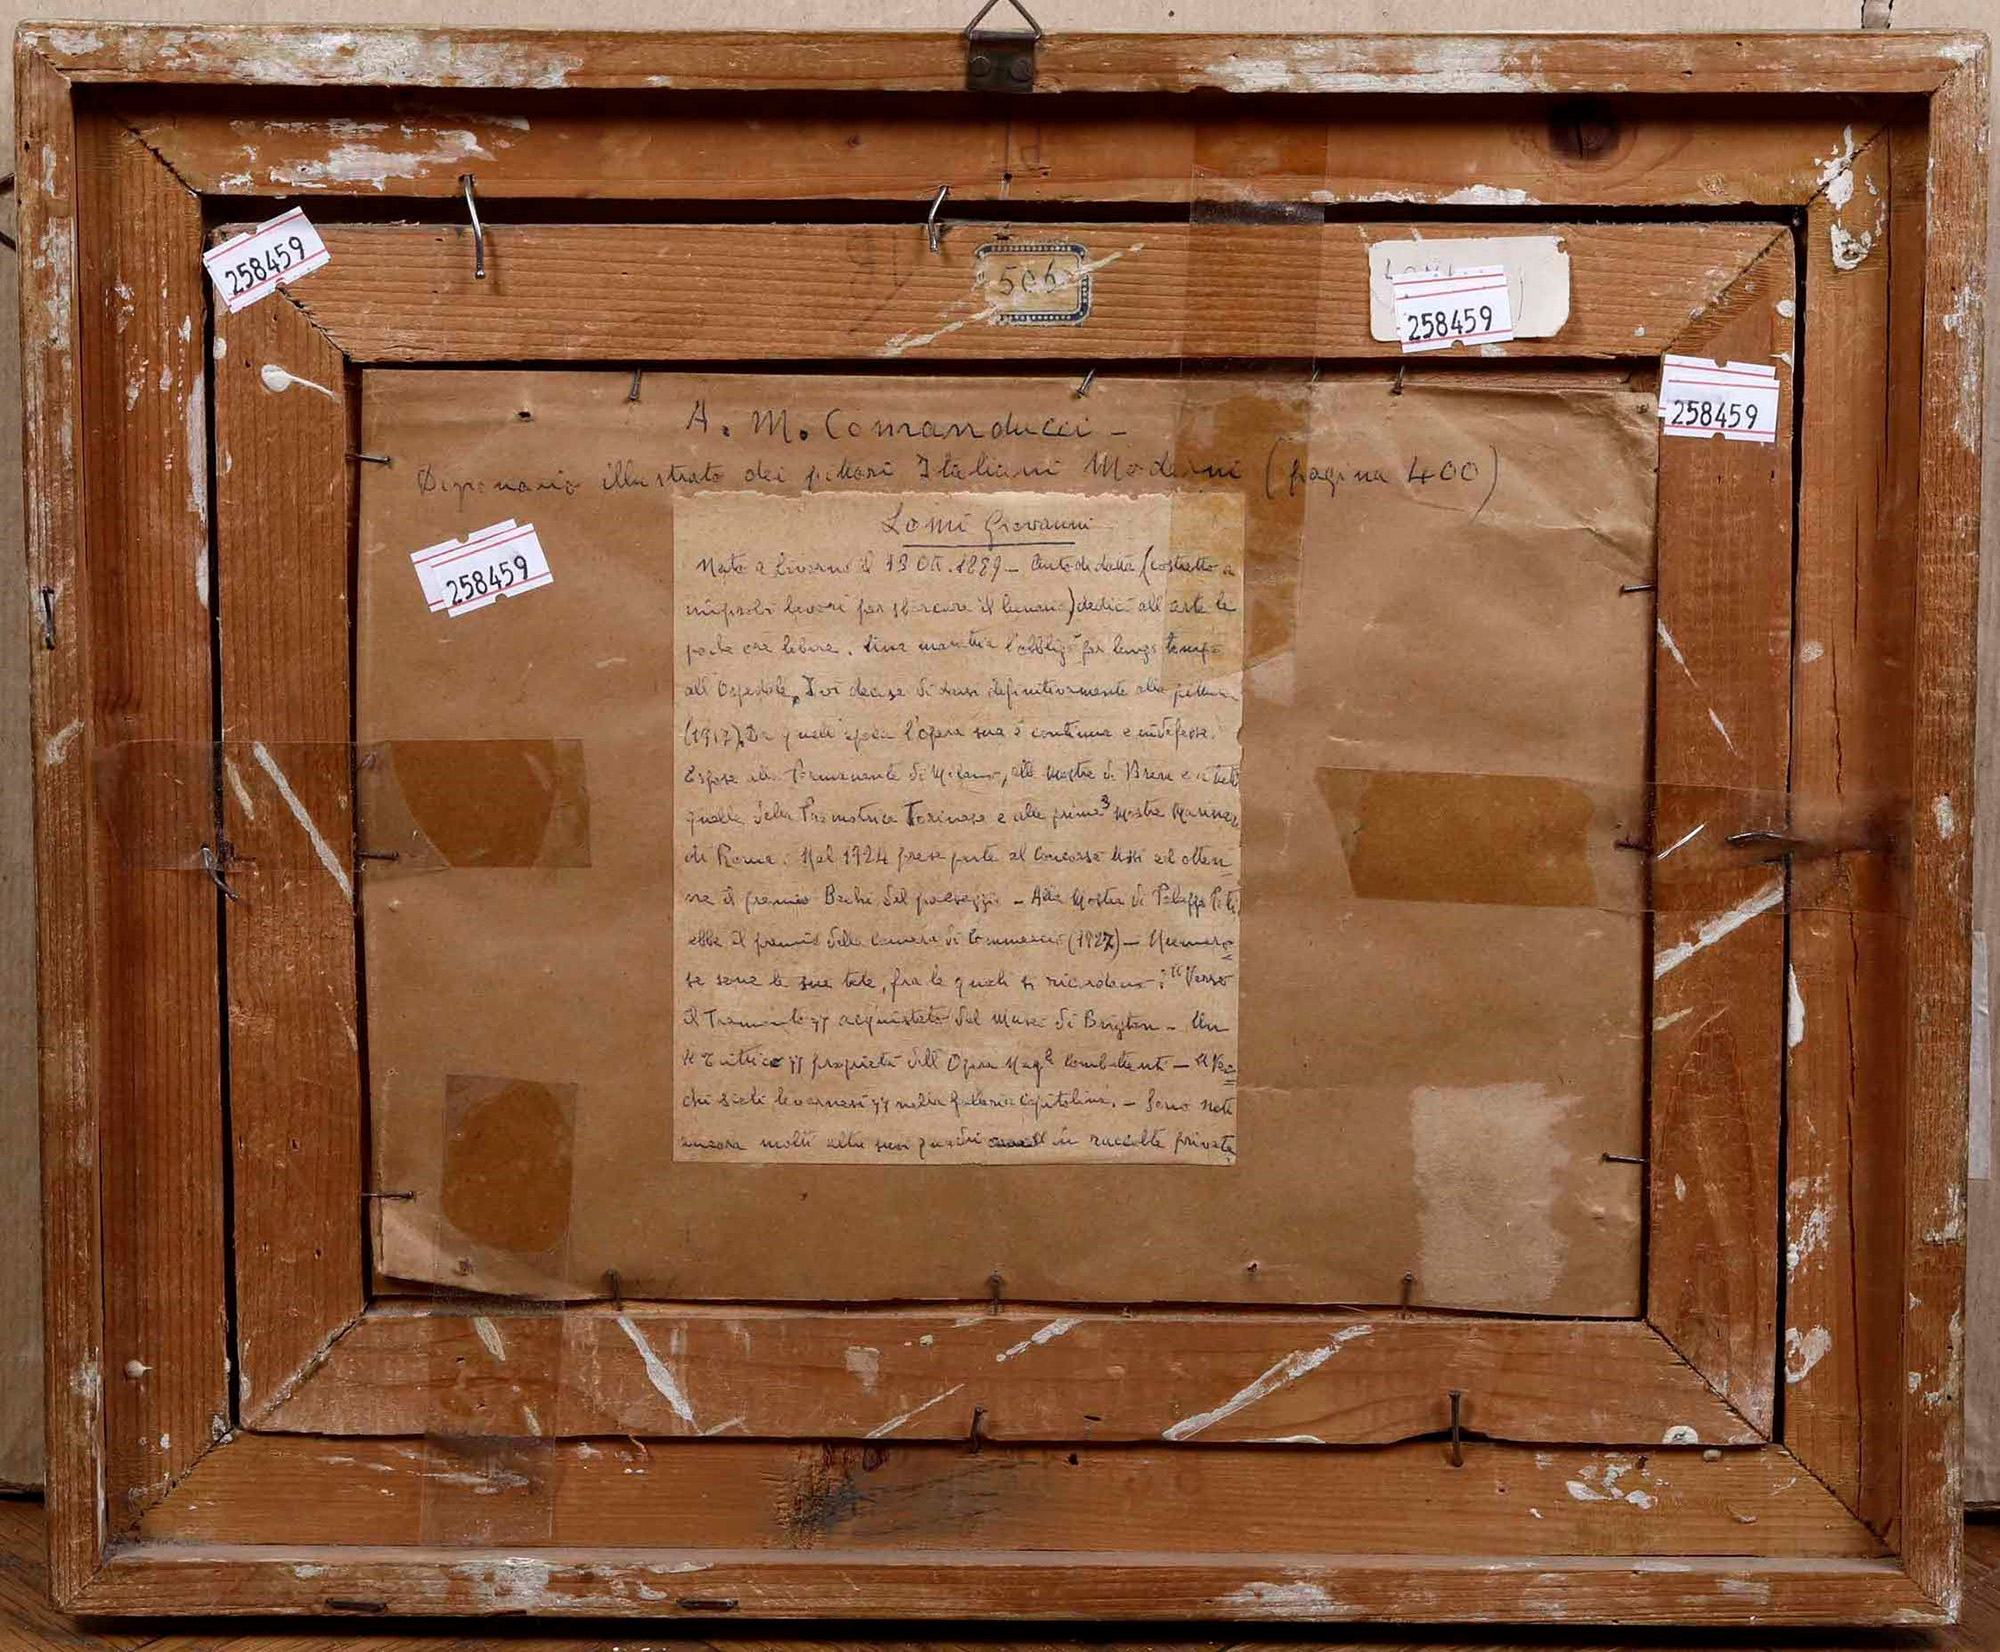 258459
506
258459
258459
A. M. Comanducci -
Dizionario illustrato dei pittori Italiani Moderni (pagina 400)
258459
Lomi Giovanni
Nato a Livorno il 19 Ott. 1889 - Autodidatta (costretto a
improbi lavori per sbarcare il lunario) dedicò all'arte le
poche ore libere. Una malattia l'obbligò per lungo tempo
all'Ospedale, Ivi decise di darsi definitivamente alla pittura
(1917). Da quell'epoca l'opera sua è continua e indefessa.
Espose alla Permanente di Milano, alle Mostre di Brera e a tutte
quelle della Promotrice Torinese e alla prima Mostra Marinara
di Roma. Nel 1924 prese parte al Concorso Ussi ed otten
ne il premio Bachi del paesaggio - Alla Mostra di Palazzo Pitti
ebbe il premio della Camera di Commercio (1927) - Numero
se sono le sue tele, fra le quali si ricordano: "Verso
il Tramonto" acquistato dal Museo di Brigton - Un
propietà dell'Opera Naz.e Combattenti - "Vec
chi scali livornesi" nella Galleria Capitolina. - Sono noti
ancora molti altri suoi quadri in raccolte private